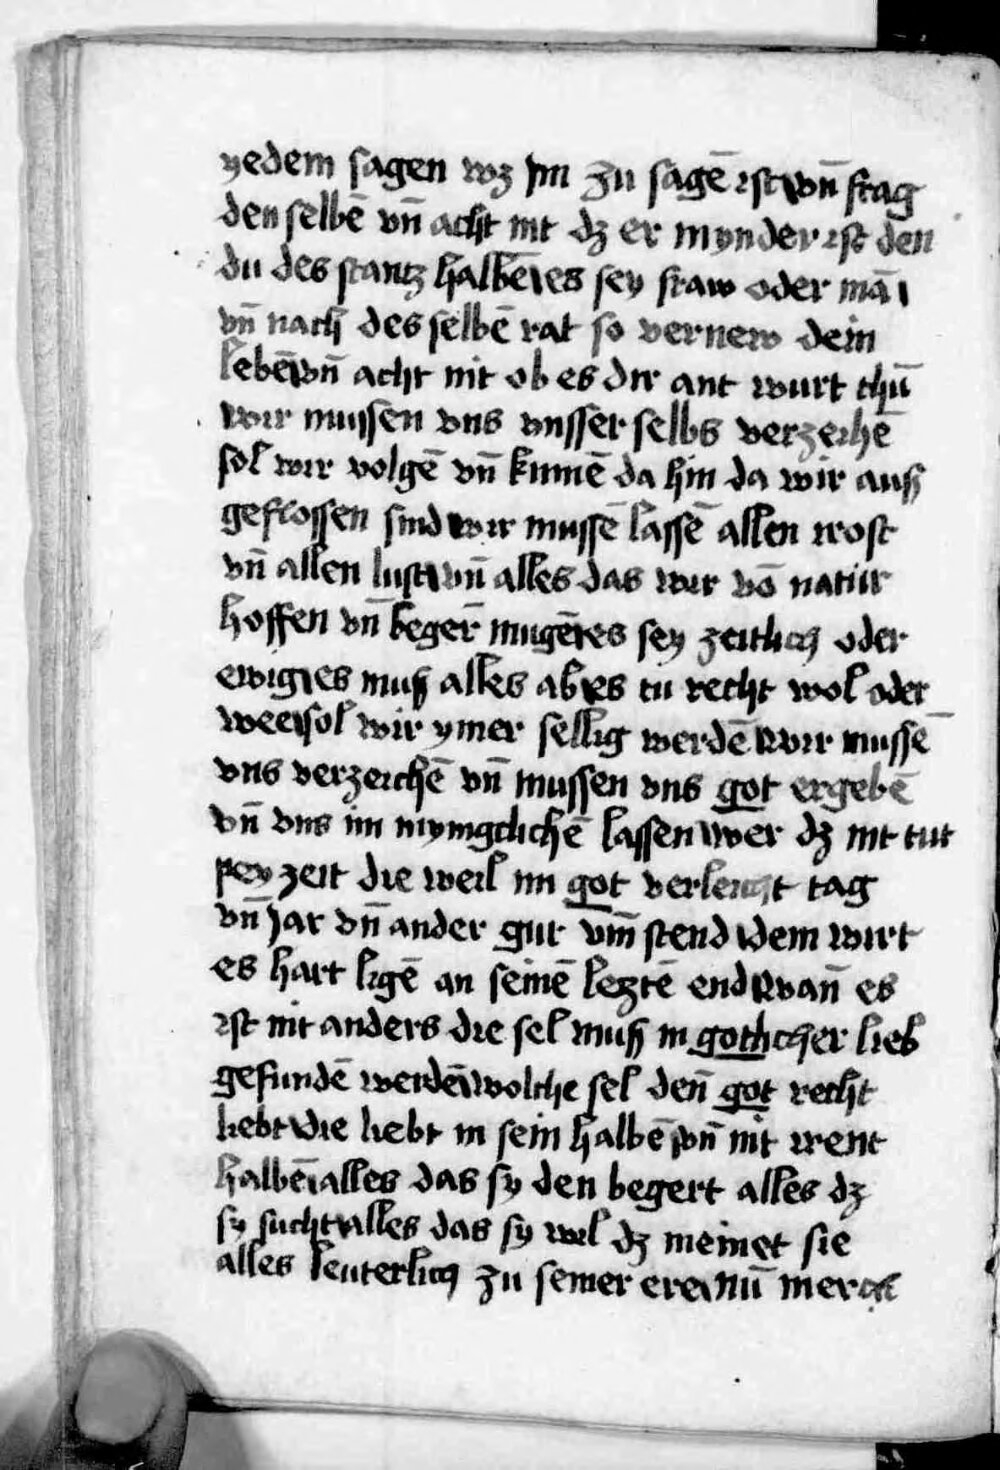 yedem sagen wz ym zu sagē ist vn̄ frag
den selbē vn̄ acht nit dz er mynder ist den
du des stantz halbē es sey fraw oder mā
vn̄ nach des selbē rat so vernew dein
lebē vn̄ acht nit ob es dir ant wurt thū
wir mussen vns vnsser selbs verzeihē
sol wir volgē vn̄ kumē da hin da wir auß
geflossen sind wir mussē lassē allen trost
vn̄ allen lust vn̄ alles das wir vō natur
hoffen vn̄ beger̄ mugē es sey zeitlich oder
ewig es muß alles ab es tu recht wol oder
wee sol wir ymer sellig werdē wir mussē
vns verzeichē vn̄ mussen vns got ergebē
vn̄ vns im mynigclichē lassen wer dz nit tut
pey zeit die weil im got verleicht tag
vn̄ Jar vn̄ ander gut vm̄ stend dem wirt
es hart ligē an seinē leztē end wan̄ es
ist nit anders die sel muß in gotlicher lieb
gefundē werdē wolche sel den̄ got recht
liebt die liebt in sein halbē vn̄ nit irent
halbē alles das sy den begert alles dz
sy sucht alles das sy wil dz meinet sie
alles leuterlich zu seiner ere nū merck